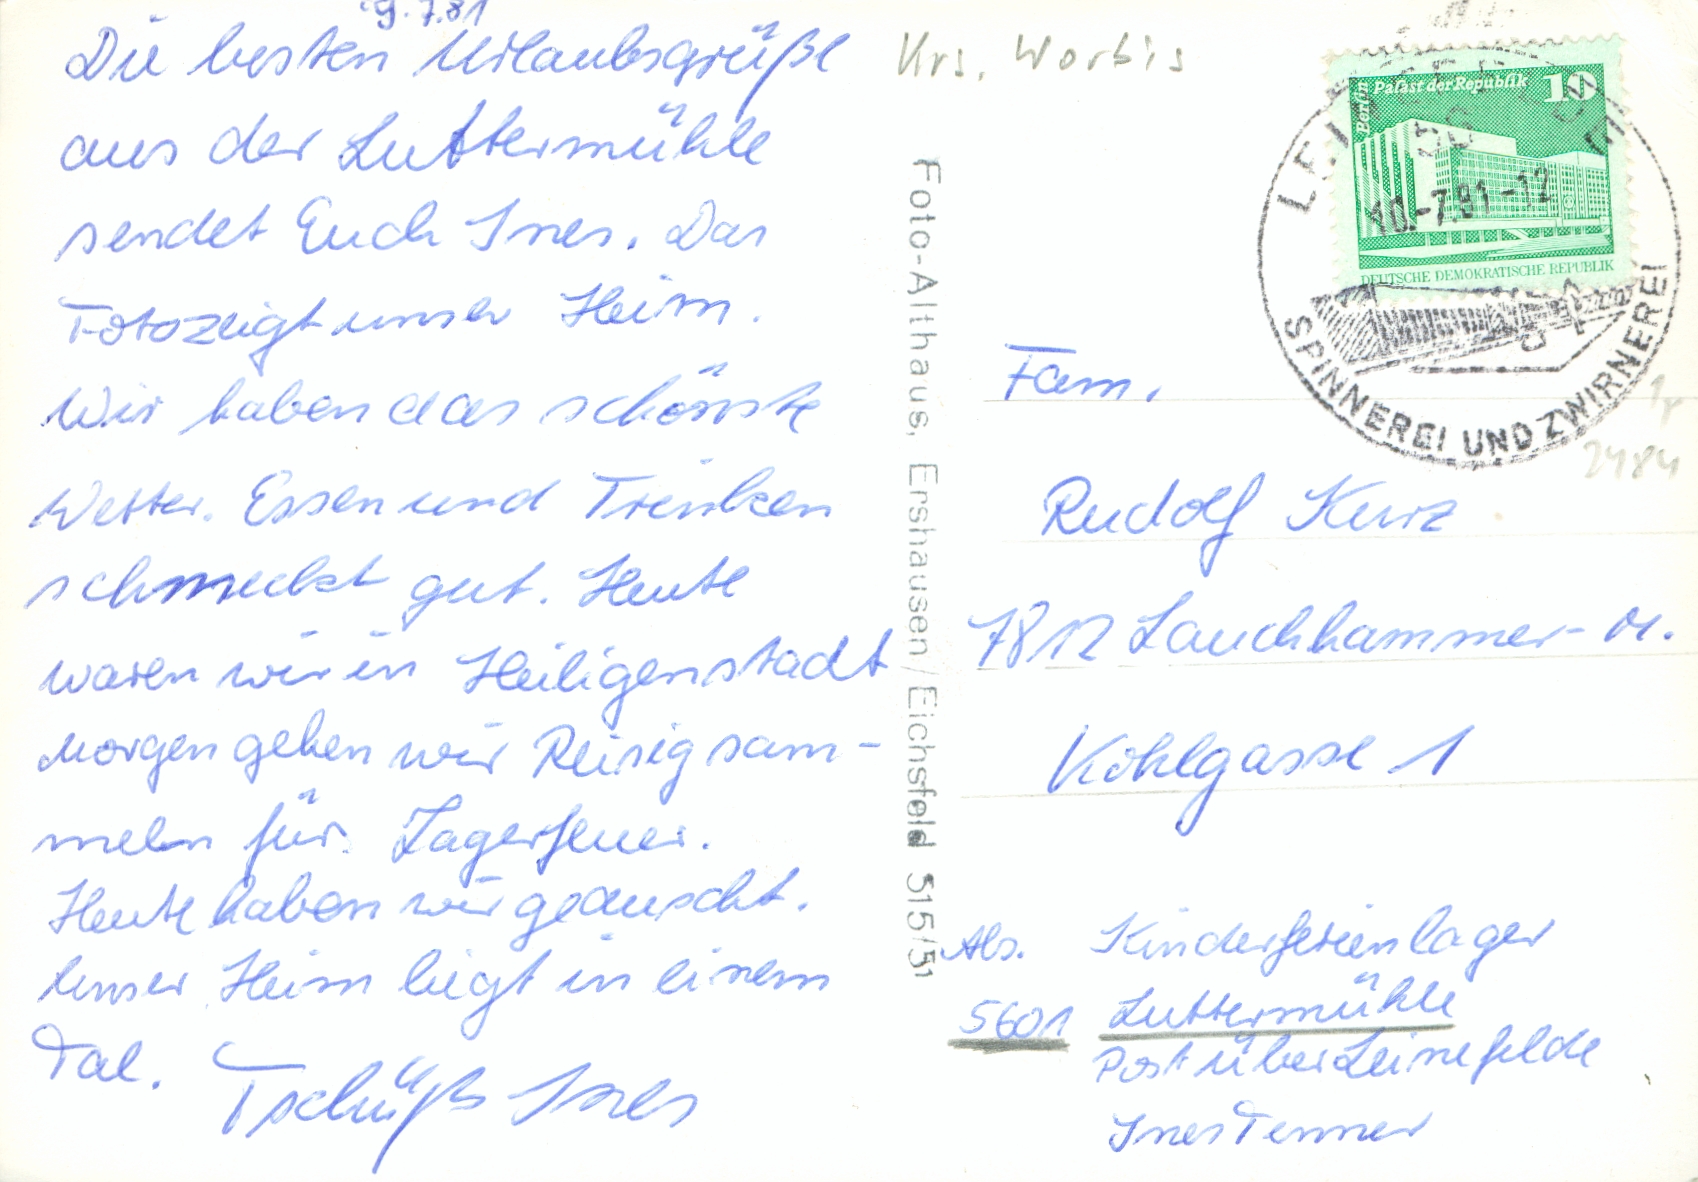 9.7.81
Die besten Urlaubsgrüße
aus der Luttermühle
sendet Euch Ines. Das
Foto zeigt unser Heim.
Wir haben das schönste
Wetter. Essen und Trinken
schmeckt gut. Heute
waren wir in Heiligenstadt
Morgen gehen wir Reisig sam-
meln für Lagerfeuer.
Heute haben wir geduscht.
Unser Heim liegt in einem
Tal. Tschüß Ines
Foto-Althaus, Ershausen/Eichsfeld 515/51
Krs. Worbis
Berlin Palast der Republik 10
DEUTSCHE DEMOKRATISCHE REPUBLIK
10.-7.81-12
SPINNEREI UND ZWIRNEREI
2484
Fam.
Rudolf Kurz
7812 Lauchhammer-M.
Kohlgasse 1
Abs. Kinderferienlager
5601 Luttermühle
Post über Leinefelde
Ines Tenner